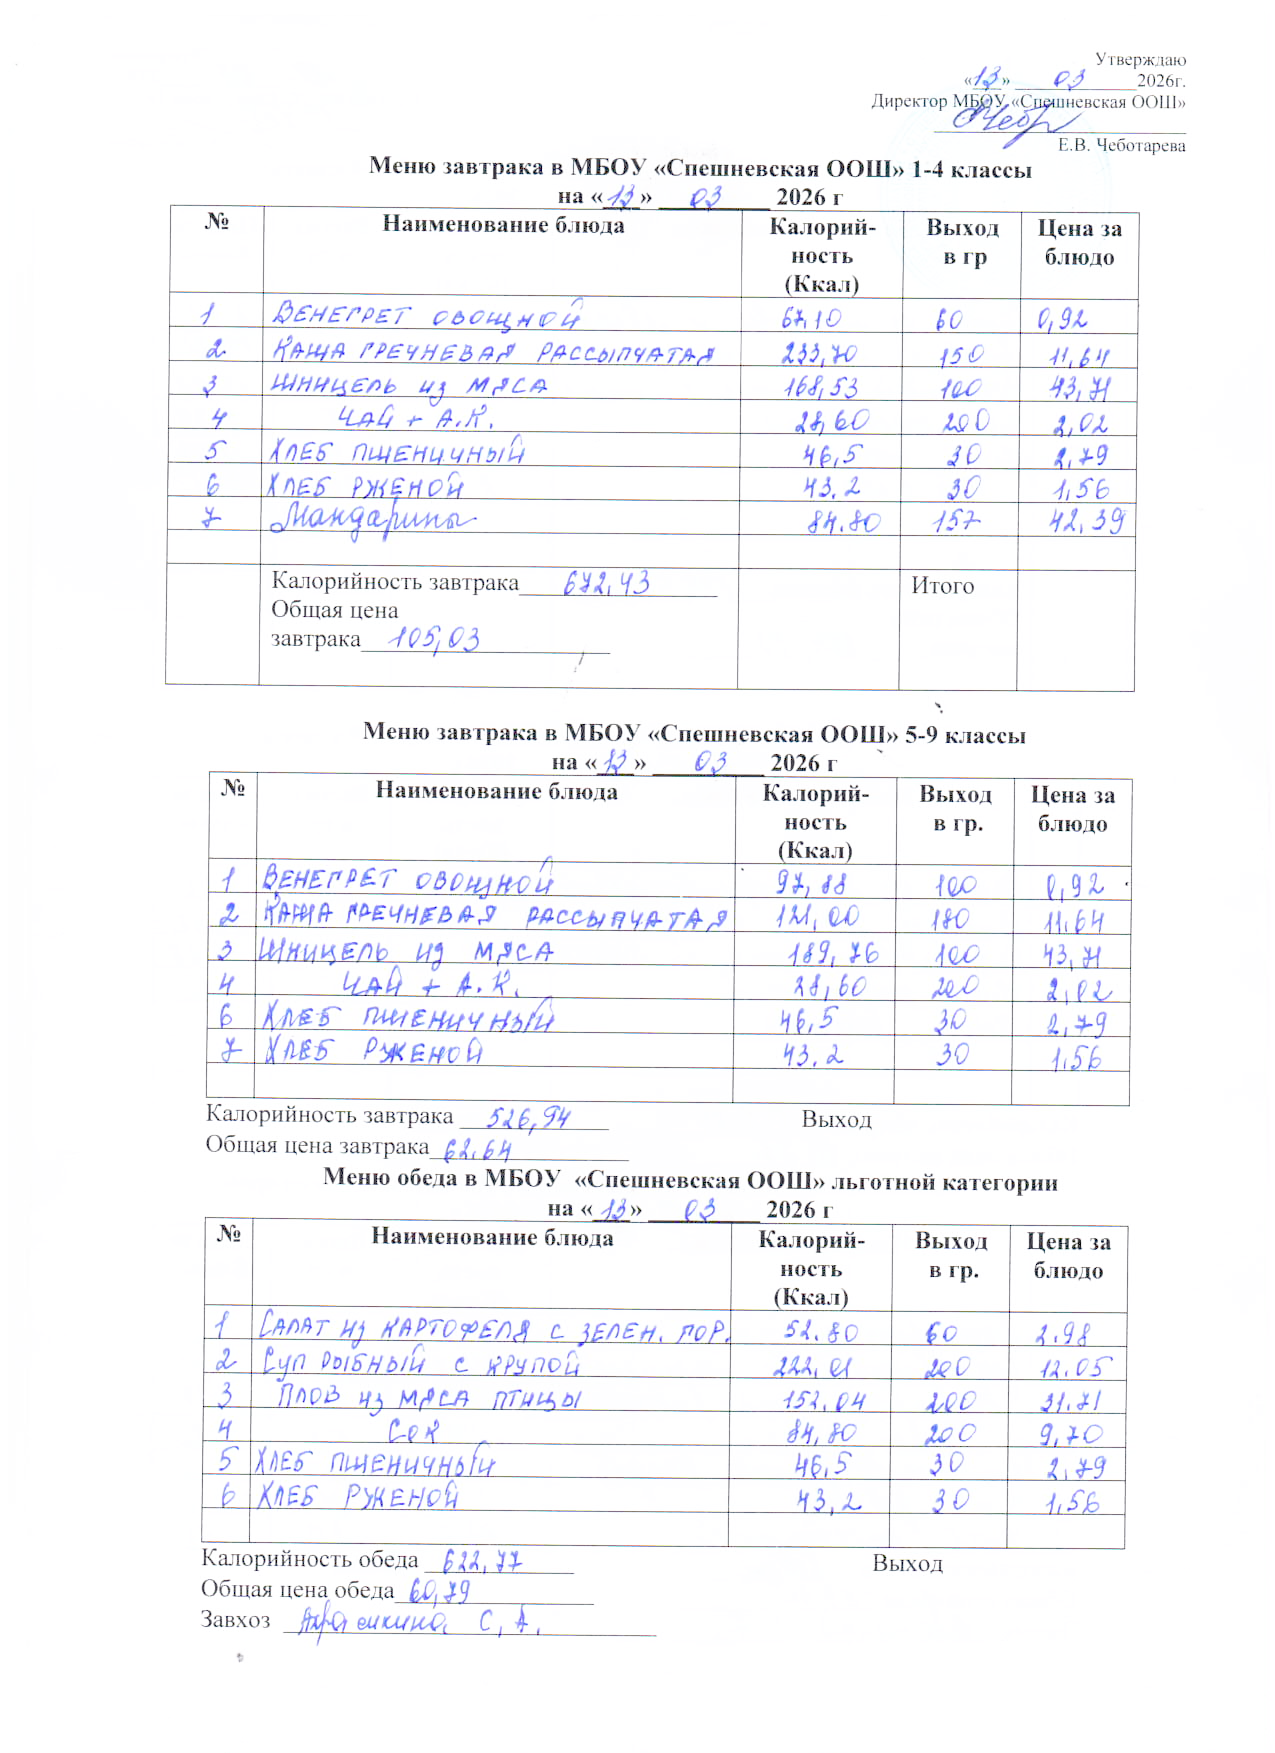 Утверждаю
«13» 03 2026г.
Директор МБОУ «Спешневская ООШ»
Е.В. Чеботарева
Меню завтрака в МБОУ «Спешневская ООШ» 1-4 классы
на «13» 03 2026 г
№ Наименование блюда Калорий-ность (Ккал) Выход в гр Цена за блюдо
1 Венегрет овощной 67,10 60 0,92
2 Каша гречневая рассыпчатая 233,70 150 11,64
3 Шницель из мяса 168,53 100 43,71
4 Чай + А.К. 28,60 200 2,02
5 Хлеб пшеничный 46,5 30 2,79
6 Хлеб рженой 43.2 30 1,56
7 Мандарины 84.80 157 42,39
Калорийность завтрака 672,43 Итого
Общая цена
завтрака 105,03
Меню завтрака в МБОУ «Спешневская ООШ» 5-9 классы
на «13» 03 2026 г
№ Наименование блюда Калорий-ность (Ккал) Выход в гр. Цена за блюдо
1 Венегрет овощной 97,88 100 0,92
2 Каша гречневая рассыпчатая 121,00 180 11.64
3 Шницель из мяса 189,76 100 43,71
4 Чай + А.К. 28,60 200 2,02
6 Хлеб пшеничный 46,5 30 2,79
7 Хлеб рженой 43.2 30 1,56
Калорийность завтрака 526,94 Выход
Общая цена завтрака 62.64
Меню обеда в МБОУ «Спешневская ООШ» льготной категории
на «13» 03 2026 г
№ Наименование блюда Калорий-ность (Ккал) Выход в гр. Цена за блюдо
1 Салат из картофеля с зелен. гор. 52.80 60 2.98
2 Суп рыбный с крупой 222,01 200 12.05
3 Плов из мяса птицы 152,04 200 31.71
4 Сок 84,80 200 9,70
5 Хлеб пшеничный 46,5 30 2,79
6 Хлеб рженой 43,2 30 1,56
Калорийность обеда 622,77 Выход
Общая цена обеда 60,79
Завхоз С.А.